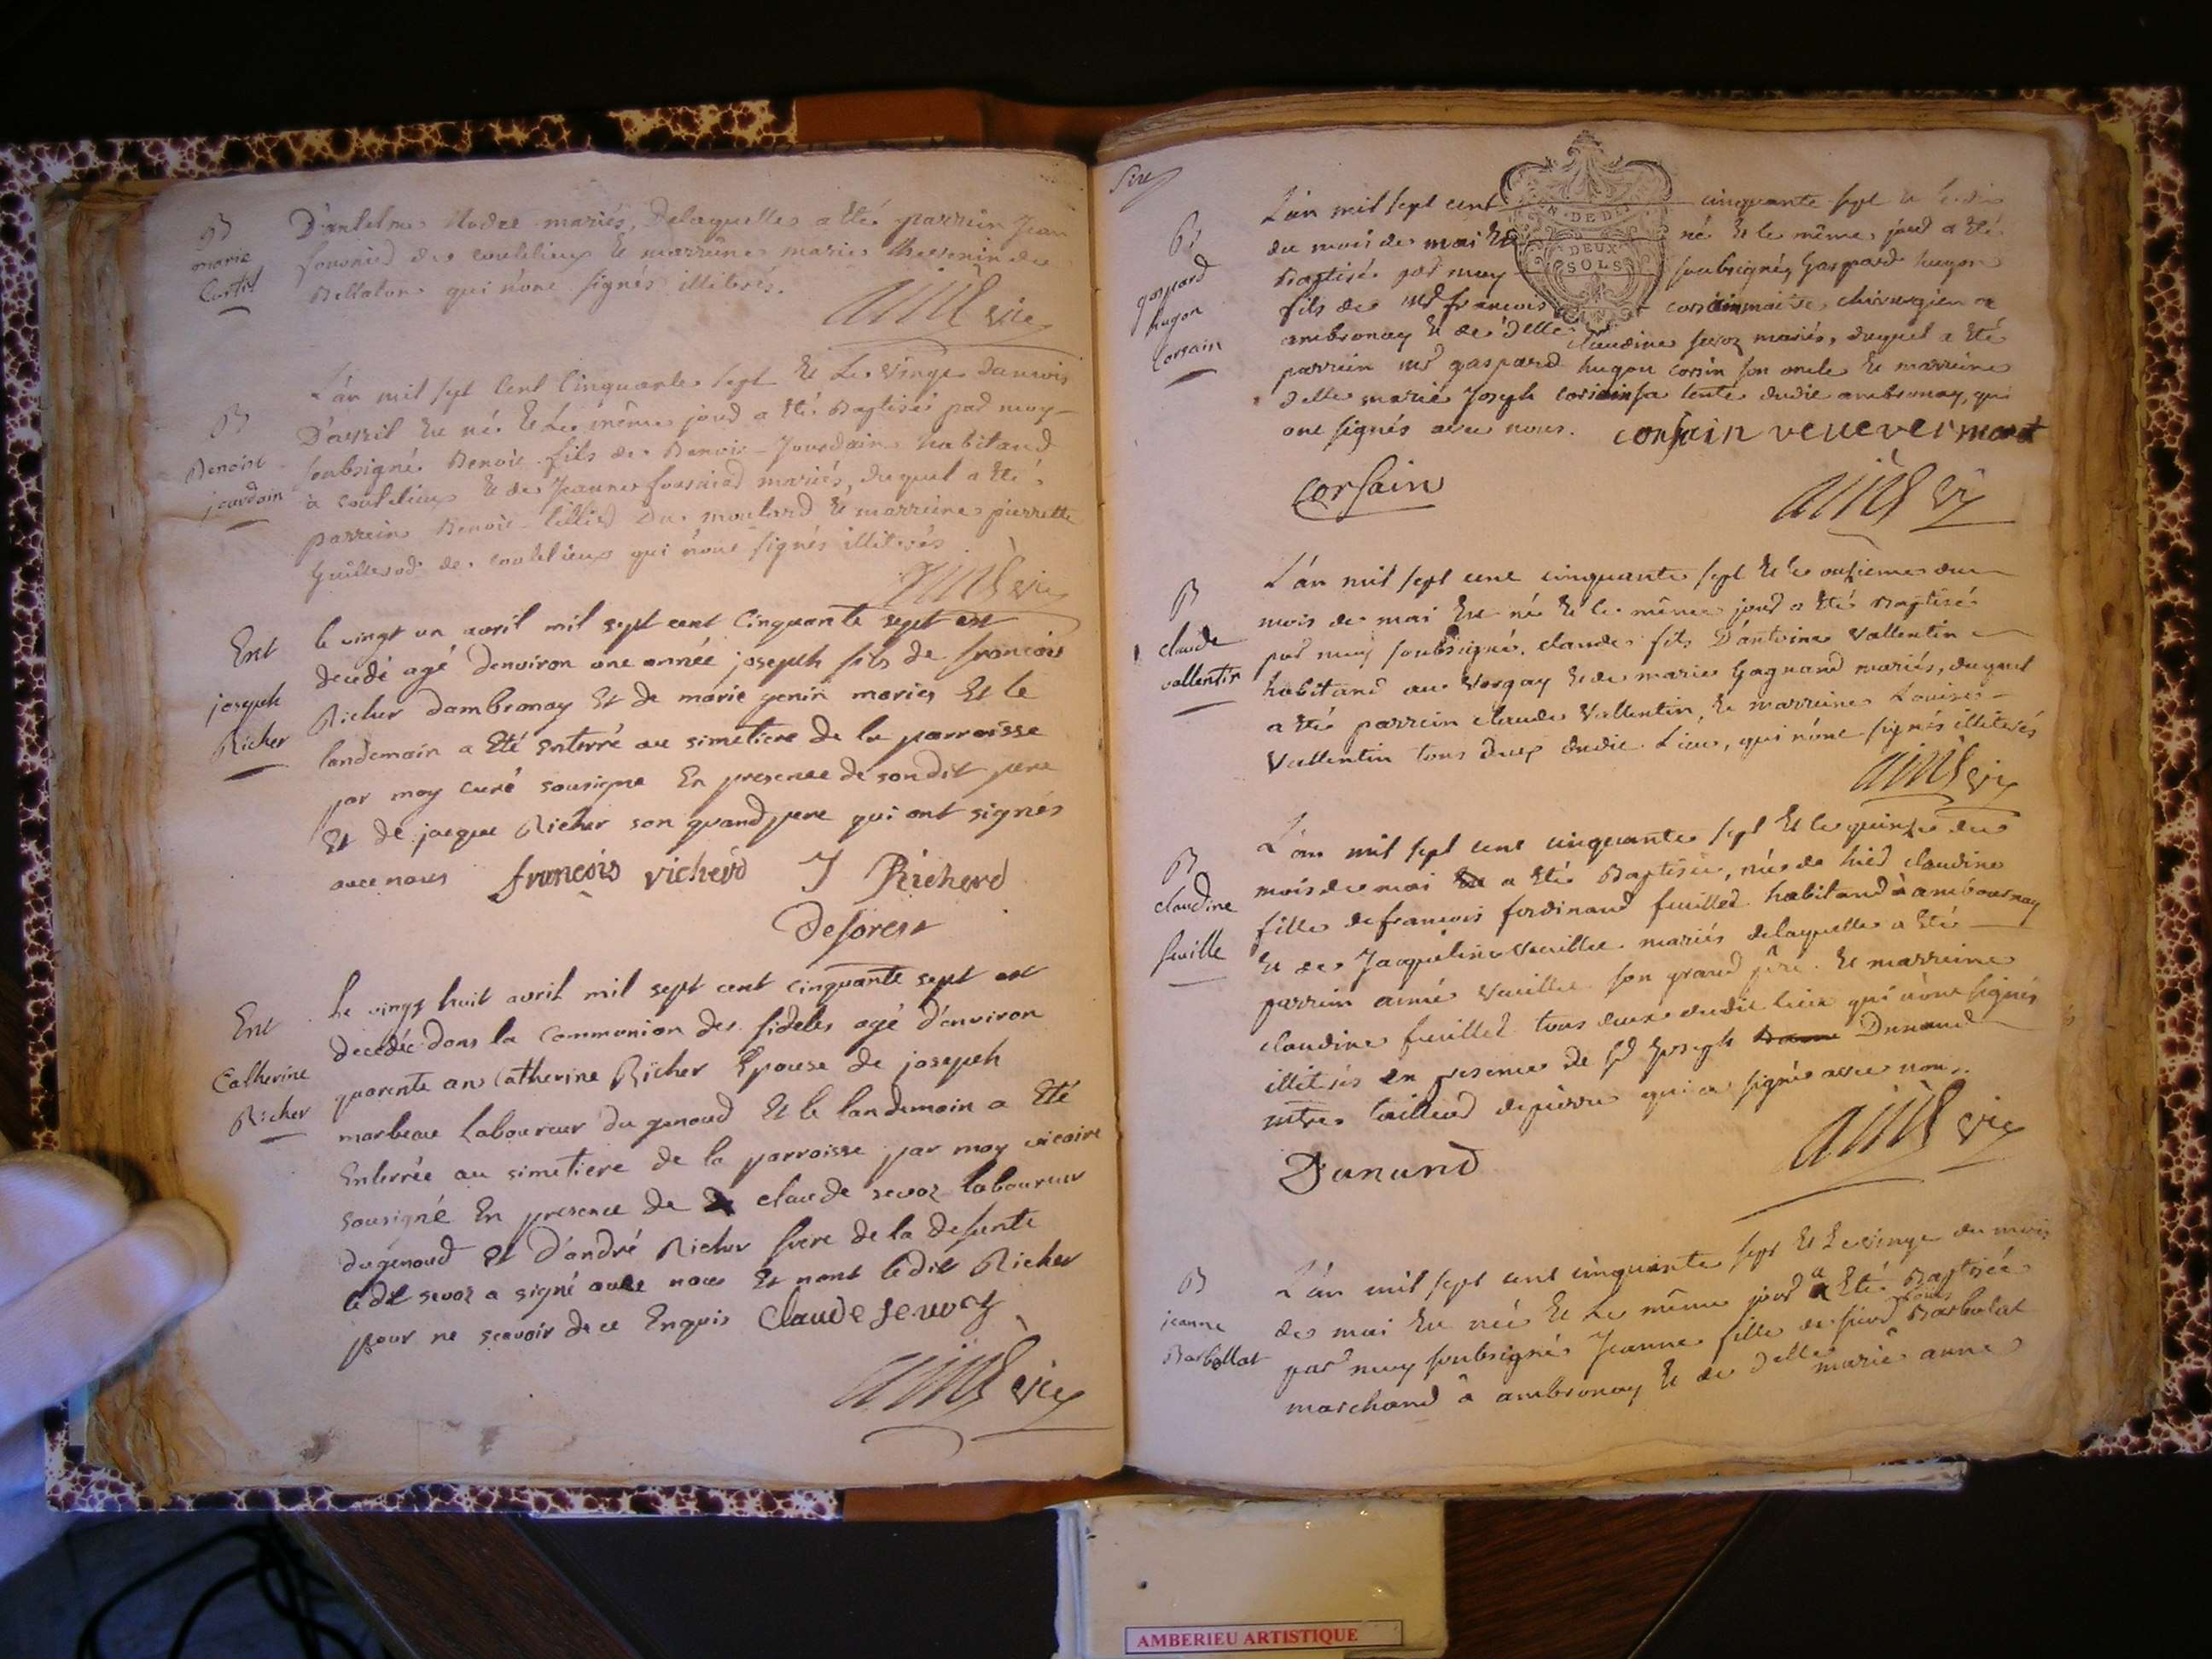 B
marie
Curtet
D'antelme mariés, Delaquelle a Eté parrein Jean
de coutelieux Et marreine marie
qui n'ont signés illiterés.
aimé vic
B
Benoist
jourdain
L'an mil sept Cent Cinquante sept Et Le vingt du mois
D'avril Est né Et Le même jour a Eté Baptisé par moy
soubsigné Benoit fils de Benoit Jourdain habitand
à coutelieux Et de Jeanne mariés, duquel a Eté
parrein Benoit Du moulard Et marreine pierrette
de coutelieux qui n'ont signés illiterés
aimé vic
Ent
joseph
Richer
le vingt un avril mil sept cent Cinquante sept est
decedé agé denviron une année joseph fils de francois
Richer dambronay Et de marie genin mariés Et le
landemain a Eté Enterré au simetiere de la parroisse
par moy curé sousigne En presence de son dit pere
Et de jacque Richer son grand pere qui ont signés
avec nous francois richerd J Richerd
Deforest
Ent
Catherine
Richer
Le vingt huit avril mil sept cent cinquante sept est
decedée dans la Communion des fideles agé d'environ
quarente ans Catherine Richer Epouse de joseph
marbeau Laboureur du genoud Et le landemain a Eté
Enterrée au simetiere de la parroisse par moy vicaire
sousigné En presence de claude sevoz laboureur
du genoud Et D'andré Richer frere de la defunte
ledit sevoz a signé avec nous Et nont ledit Richer
pour ne scavoir de ce Enquis Claude sevoz
aimé vic
B
gaspard
hugon
Corsain
N DE DI
DEUX
SOLS
L'an mil sept cent cinquante sept
du mois de mai Est né Et le même jour a Eté
Baptisé par moy soubsigné, Gaspard hugon
fils de francois corsain maitre chirurgien a
ambronay Et de delle Claudine sevoz mariés, duquel a Eté
parrein gaspard hugon corsin son oncle Et marreine
delle marie Joseph corsain sa tente dudit ambronay, qui
ont signés avec nous. corsain veuve vermoret
Corsain aimé vic
B
claude
vallentin
L'an mil sept cent cinquante sept Et le onzieme du
mois de mai Est né Et le même jour a Eté Baptisé
par moy soubsigné, claude fils D'antoine Vallentin
habitand au Vorgay Et de marie Gagnand mariés, duquel
a Eté parrein claude Vallentin, Et marreine Louise
Vallentin tous deux dudit Lieu, qui n'ont signés illiterés
aimé vic
B
claudine
feuille
L'an mil sept cent cinquante sept Et le quinze du
mois de mai a Eté Baptisée, née de hier claudine
fille de francois ferdinand feuillet habitand à ambournay
Et de Jacqueline mariés delaquelle a Eté
parrein aimé son grand père Et marreine
claudine feuillet tous deux dudit lieu qui n'ont signés
illiterés en presence de Joseph Dunand
mtre tailleur de pierre qui a signé avec nous.
Dunand aimé vic
B
jeanne
Barbollat
L'an mil sept cent cinquante sept Et Le vingt du mois
de mai Est née Et Le même jour a Eté Baptisée
par moy soubsigné Jeanne fille de sieur Barbolat
marchand à ambronay Et de delle marie anne
AMBERIEU ARTISTIQUE